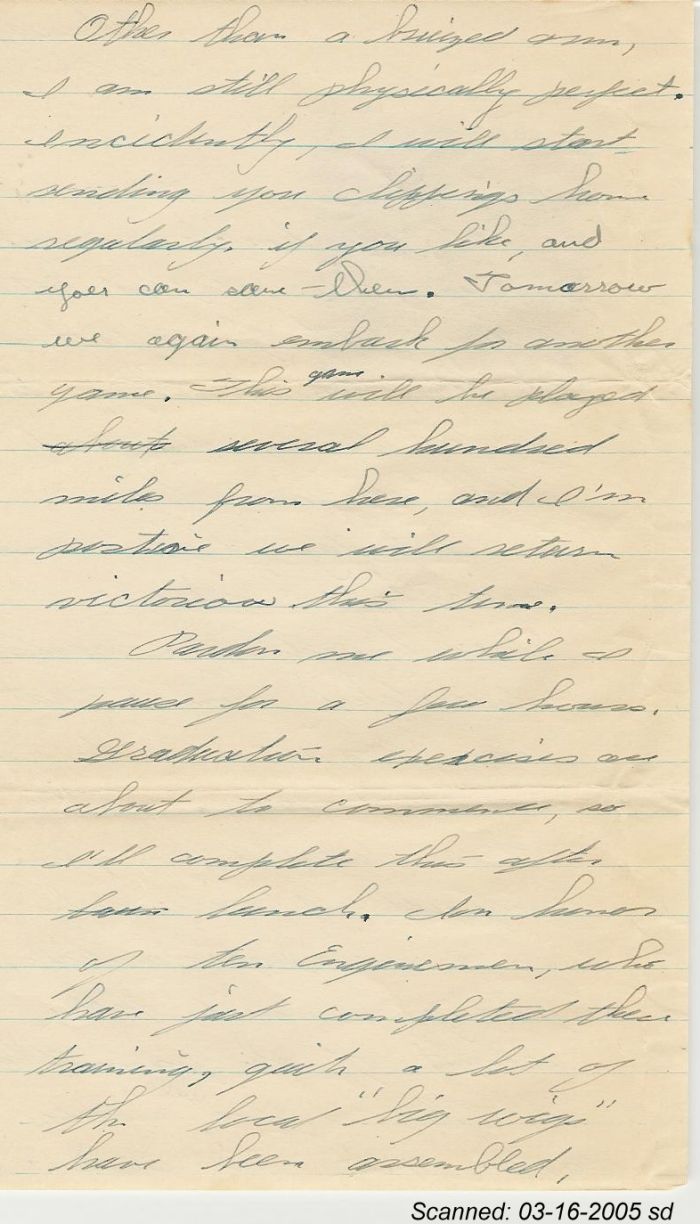 Other than a bruized arm,
I am still physically perfect.
Incidently, I will start
sending you clippings home
regularly, if you like, and
you can save them. Tomorrow
we again embark for another
game. This game will be played
about several hundred
miles from here, and I'm
positive we will return
victorious this time.
Pardon me while I
pause for a few hours.
Graduation exercises are
about to commence, so
I'll complete this after
lunch. In honor
of ten Enginemen, who
have just completed their
training, quite a lot of
the local "big wigs"
have been assembled.
Scanned: 03-16-2005 sd